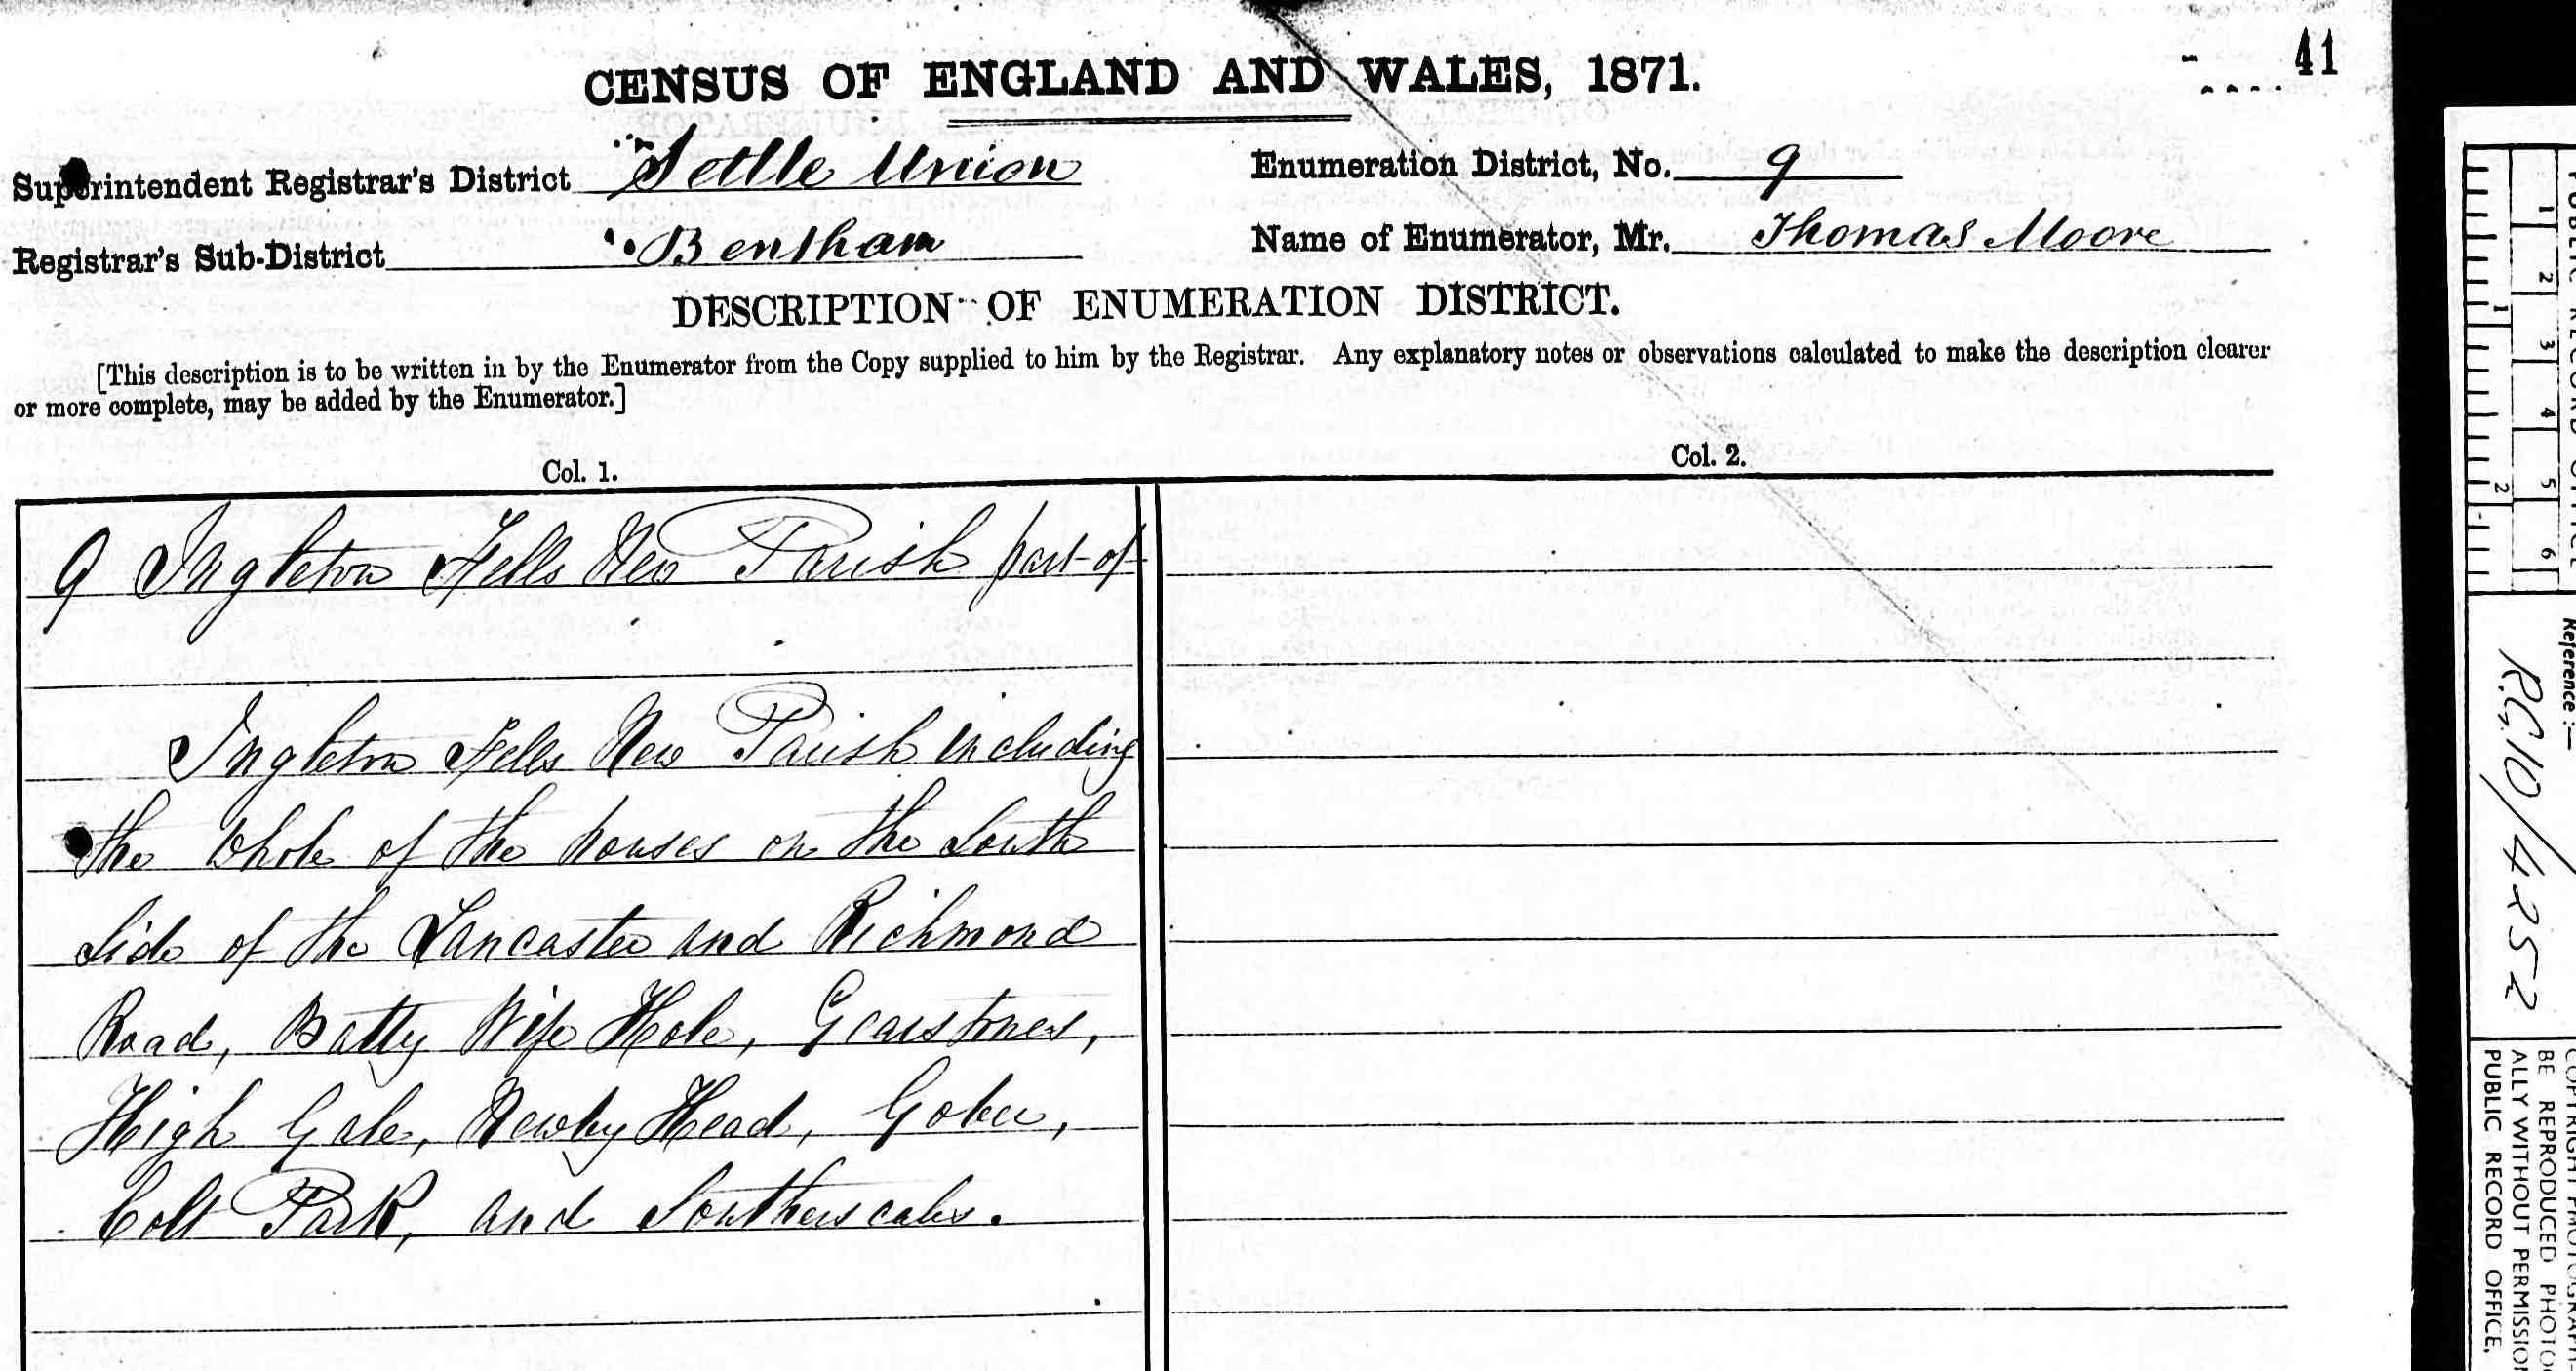 41
CENSUS OF ENGLAND AND WALES, 1871.
Superintendent Registrar's District Settle Union
Enumeration District, No. 9
Registrar's Sub-District Bentham
Name of Enumerator, Mr. Thomas Moore
DESCRIPTION OF ENUMERATION DISTRICT.
[This description is to be written in by the Enumerator from the Copy supplied to him by the Registrar. Any explanatory notes or observations calculated to make the description clearer
or more complete, may be added by the Enumerator.]
Col. 1.
Col. 2.
9 Ingleton Fells New Parish part of
Ingleton Fells New Parish including
the whole of the houses on the South
Side of the Lancaster and Richmond
Road, Batty Wife Hole, Gearstones,
High Gale, Newby Head, Gober,
Colt Park, and Southerscales.
1 2 3 4 5 6
1 2
Reference:—
R.G.10/4252
BE REPRODUCED PHOTO
ALLY WITHOUT PERMISSION
PUBLIC RECORD OFFICE,